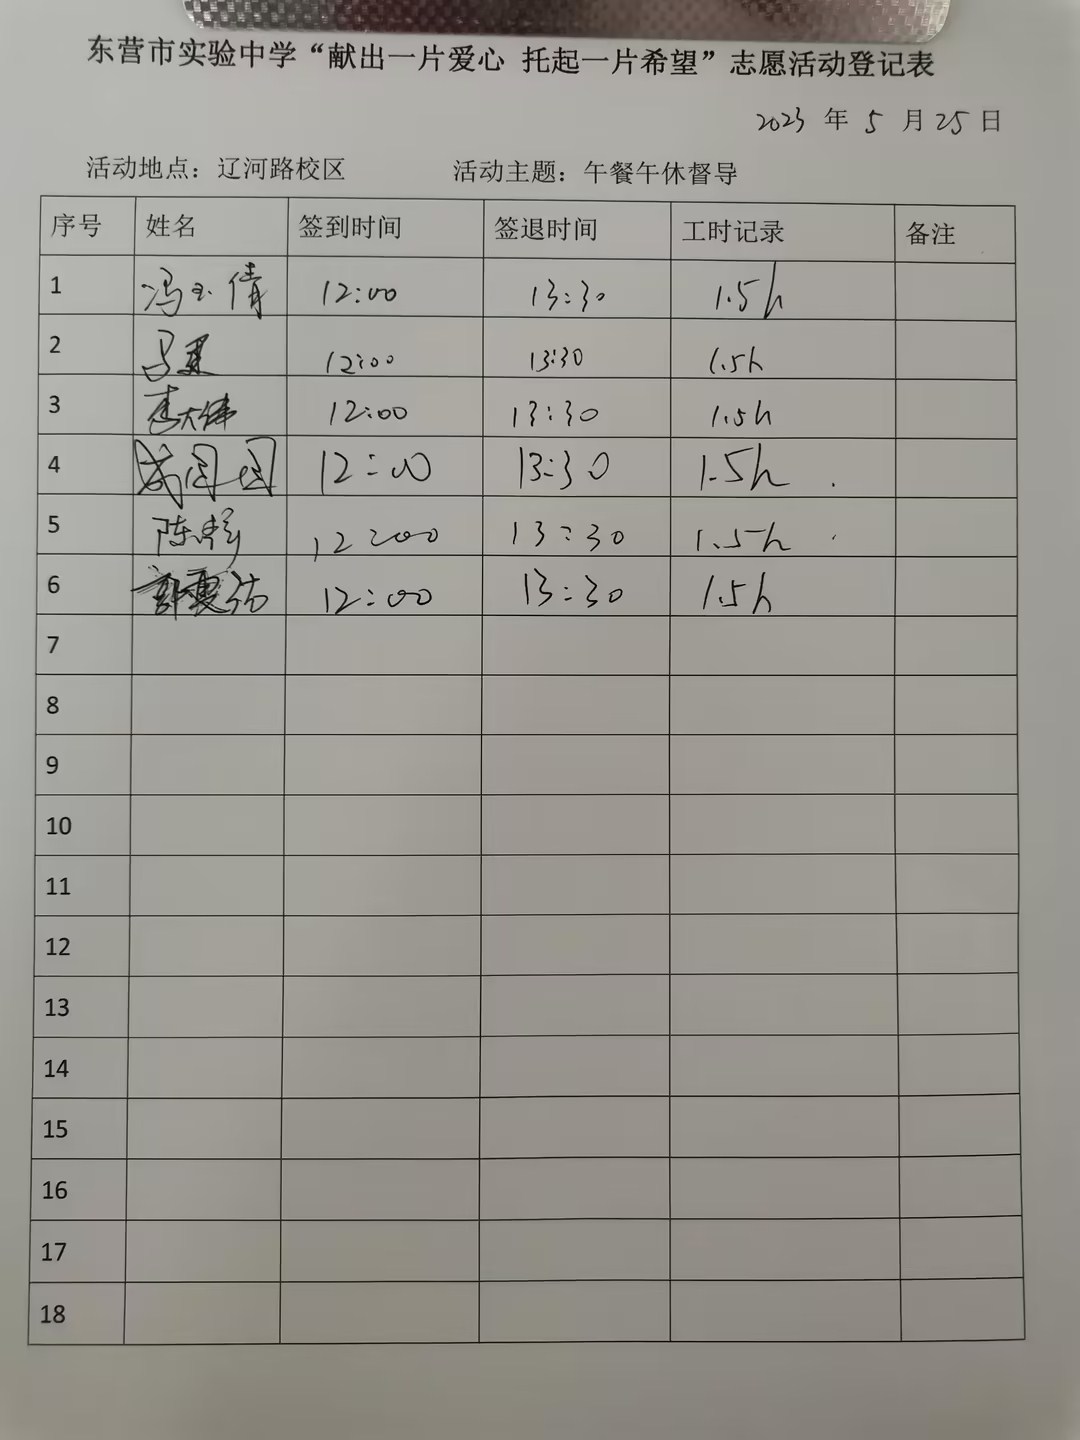 东营市实验中学“献出一片爱心 托起一片希望”志愿活动登记表
2023 年 5 月 25 日
活动地点：辽河路校区 活动主题：午餐午休督导
序号 姓名 签到时间 签退时间 工时记录 备注
1 冯玉倩 12:00 13:30 1.5h
2 12:00 13:30 1.5h
3 李大伟 12:00 13:30 1.5h
4 12:00 13:30 1.5h
5 陈 12:00 13:30 1.5h
6 12:00 13:30 1.5h
7
8
9
10
11
12
13
14
15
16
17
18